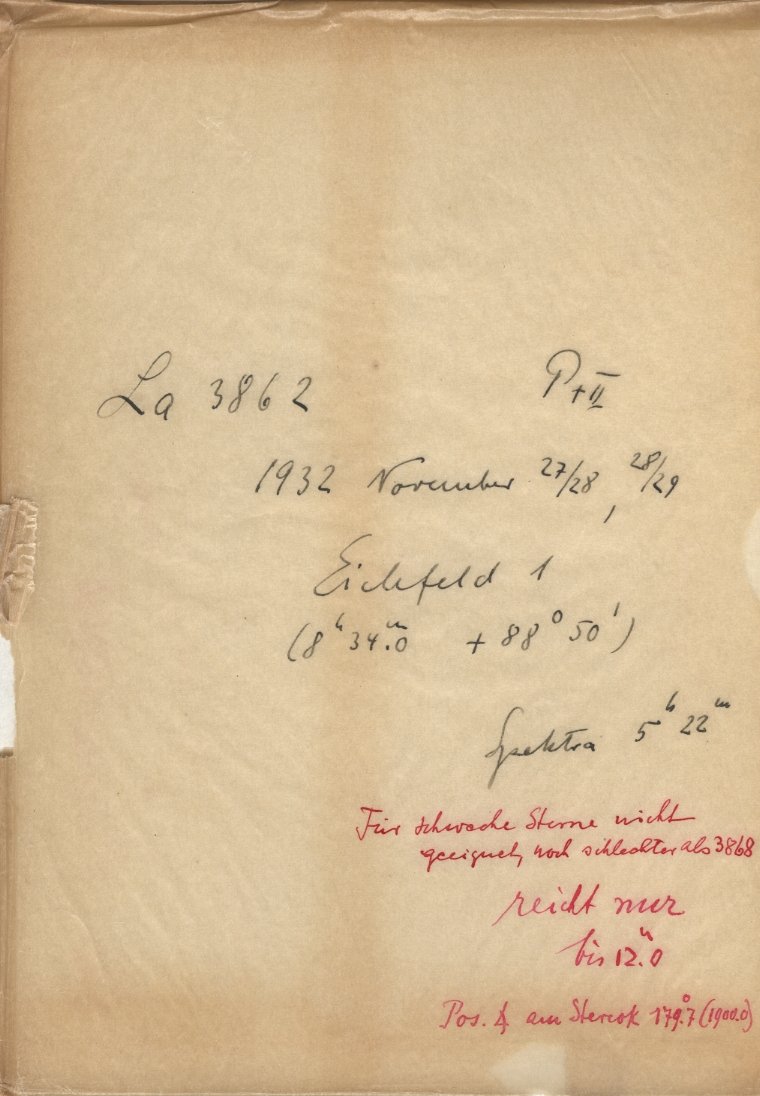 La 3862 P+II
1932 November 27/28, 28/29
Eichfeld 1
(8ʰ 34ᵐ.0 + 88° 50')
Spektra 5ʰ 22ᵐ
Für schwache Sterne nicht
geeignet, noch schlechter als 3868
reicht nur
bis 12ᵐ.0
Pos. ∡ am Stereok 179°.7 (1900.0)